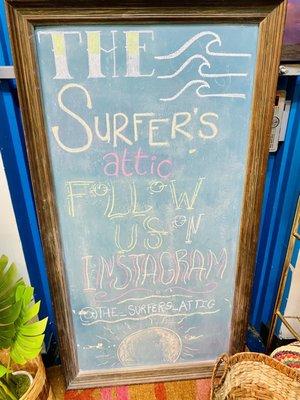 THE
SURFER'S
attic
FOLLOW
US ON
INSTAGRAM
@THE_SURFERS_ATTIC